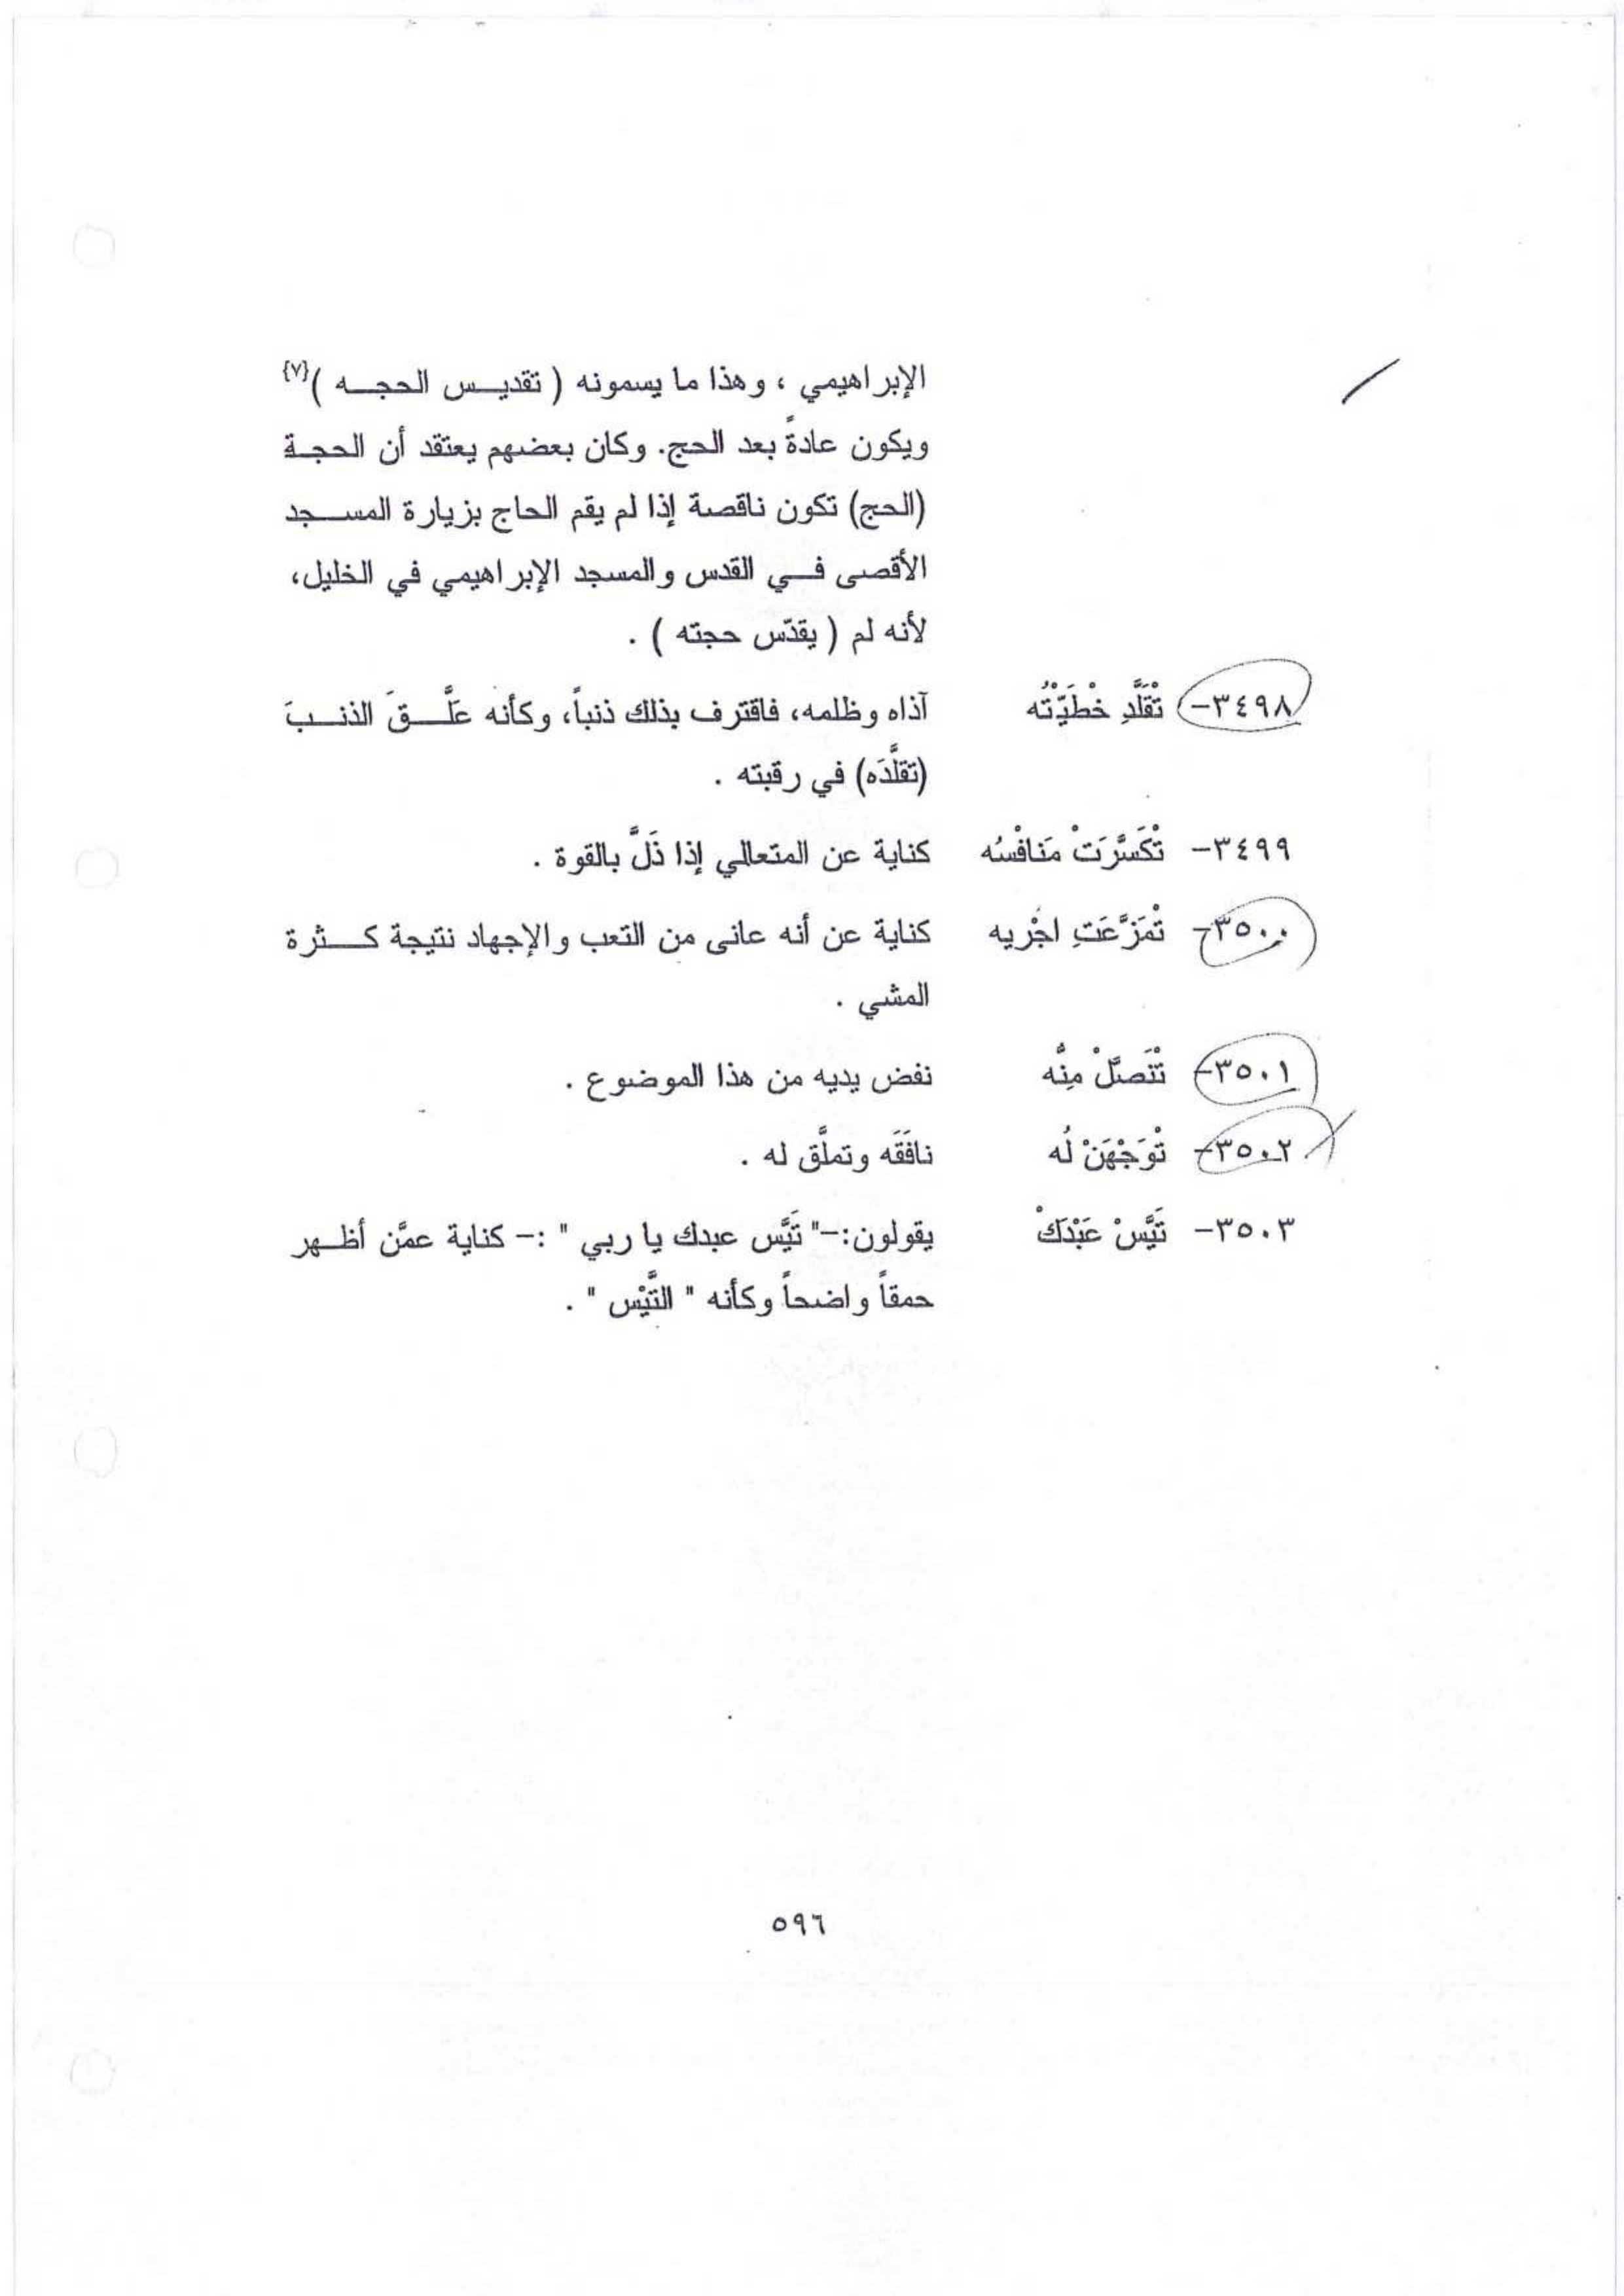 الإبراهيمي ، وهذا ما يسمونه ( تقديس الحجه ){٧}
ويكون عادةً بعد الحج. وكان بعضهم يعتقد أن الحجة
(الحج) تكون ناقصة إذا لم يقم الحاج بزيارة المسجد
الأقصى في القدس والمسجد الإبراهيمي في الخليل،
لأنه لم ( يقدّس حجته ) .
٣٤٩٨- تْقَلَّدِ خْطَيّْتُه آذاه وظلمه، فاقترف بذلك ذنباً، وكأنه علَّقَ الذنبَ
(تقلَّدَه) في رقبته .
٣٤٩٩- تْكَسَّرَتْ مَنافْسُه كناية عن المتعالي إذا ذَلَّ بالقوة .
٣٥٠٠- تْمَزَّعَتِ اجْريه كناية عن أنه عانى من التعب والإجهاد نتيجة كثرة
المشي .
٣٥٠١- تْنَصلّْ مِنُّه نفض يديه من هذا الموضوع .
٣٥٠٢- تْوَجْهَنْ لُه نافَقَه وتملَّق له .
٣٥٠٣- تَيَّسْ عَبْدَكْ يقولون:-" تَيَّس عبدك يا ربي " :- كناية عمَّن أظهر
حمقاً واضحاً وكأنه " التَّيْس " .
٥٩٦